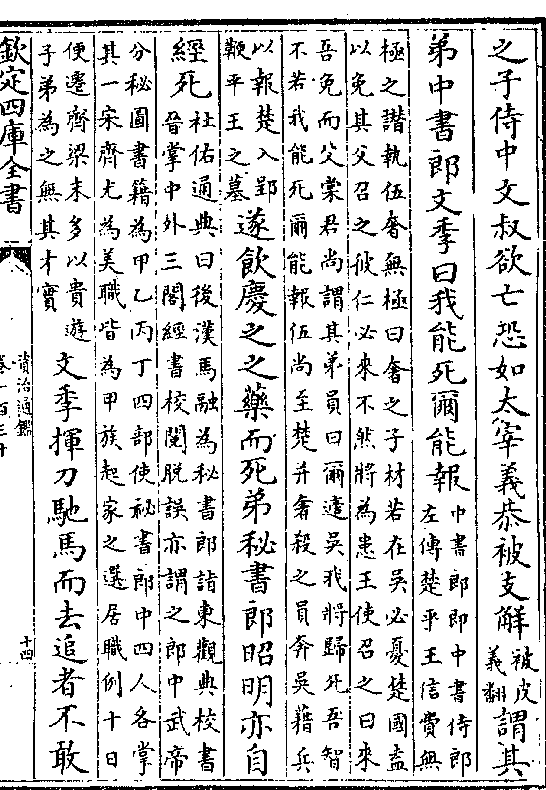 之子侍中文叔欲亡恐如太宰義恭被支解被皮義翻謂其
弟中書郎文季曰我能死爾能報中書郎即中書侍郎左傳楚平王信費無
極之譖執伍奢無極曰奢之子材若在吳必憂楚國盍
以免其父召之彼仁必來不然將為患王使召之曰來
吾免而父棠君尚謂其弟員曰爾適吳我將歸死吾智
不若我能死爾能報伍尚至楚并奢殺之員奔吳藉兵
以報楚入郢鞭平王之墓遂飲慶之之藥而死弟秘書郎昭明亦自
經死杜佑通典曰後漢馬融為秘書郎詣東觀典校書晉掌中外三閣經書校閱脱誤亦謂之郎中武帝
分秘圖書籍為甲乙丙丁四部使祕書郎中四人各掌
其一宋齊尤為美職皆為甲族起家之選居職例十日
便遷齊梁末多以貴遊子弟為之無其才實文季揮刀馳馬而去追者不敢
欽定四庫全書
資治通鑑
卷一百三十
十四